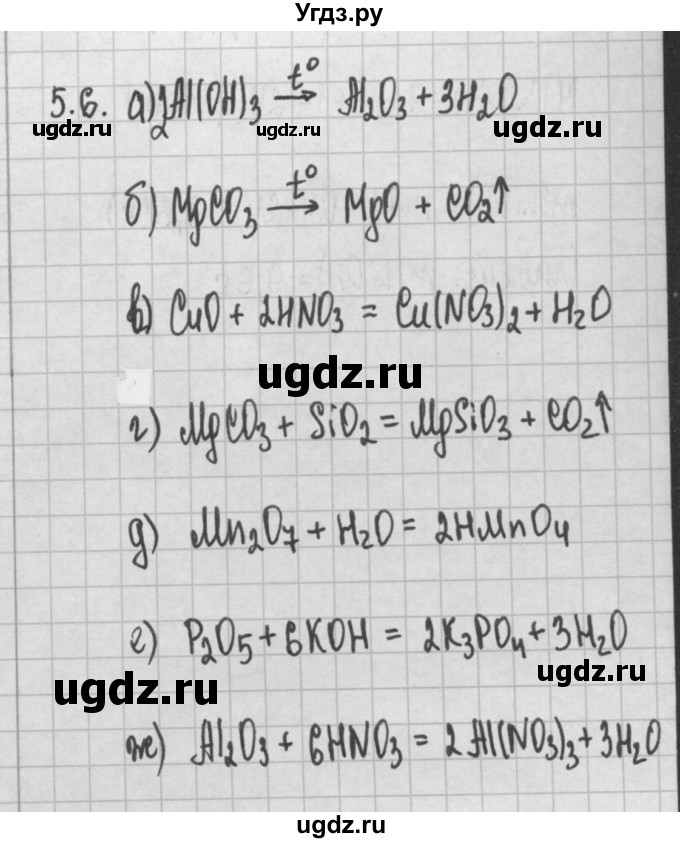 Угдз.ру
5.6. а) 2Al(OH)₃ →t° Al₂O₃ + 3H₂O
ugdz.ru ugdz.ru ugdz.ru
б) MgCO₃ →t° MgO + CO₂↑
в) CuO + 2HNO₃ = Cu(NO₃)₂ + H₂O
ugdz.ru
г) MgCO₃ + SiO₂ = MgSiO₃ + CO₂↑
д) Mn₂O₇ + H₂O = 2HMnO₄
е) P₂O₅ + 6KOH = 2K₃PO₄ + 3H₂O
ugdz.ru
ugdz.ru
ж) Al₂O₃ + 6HNO₃ = 2Al(NO₃)₃ + 3H₂O
ugdz.ru